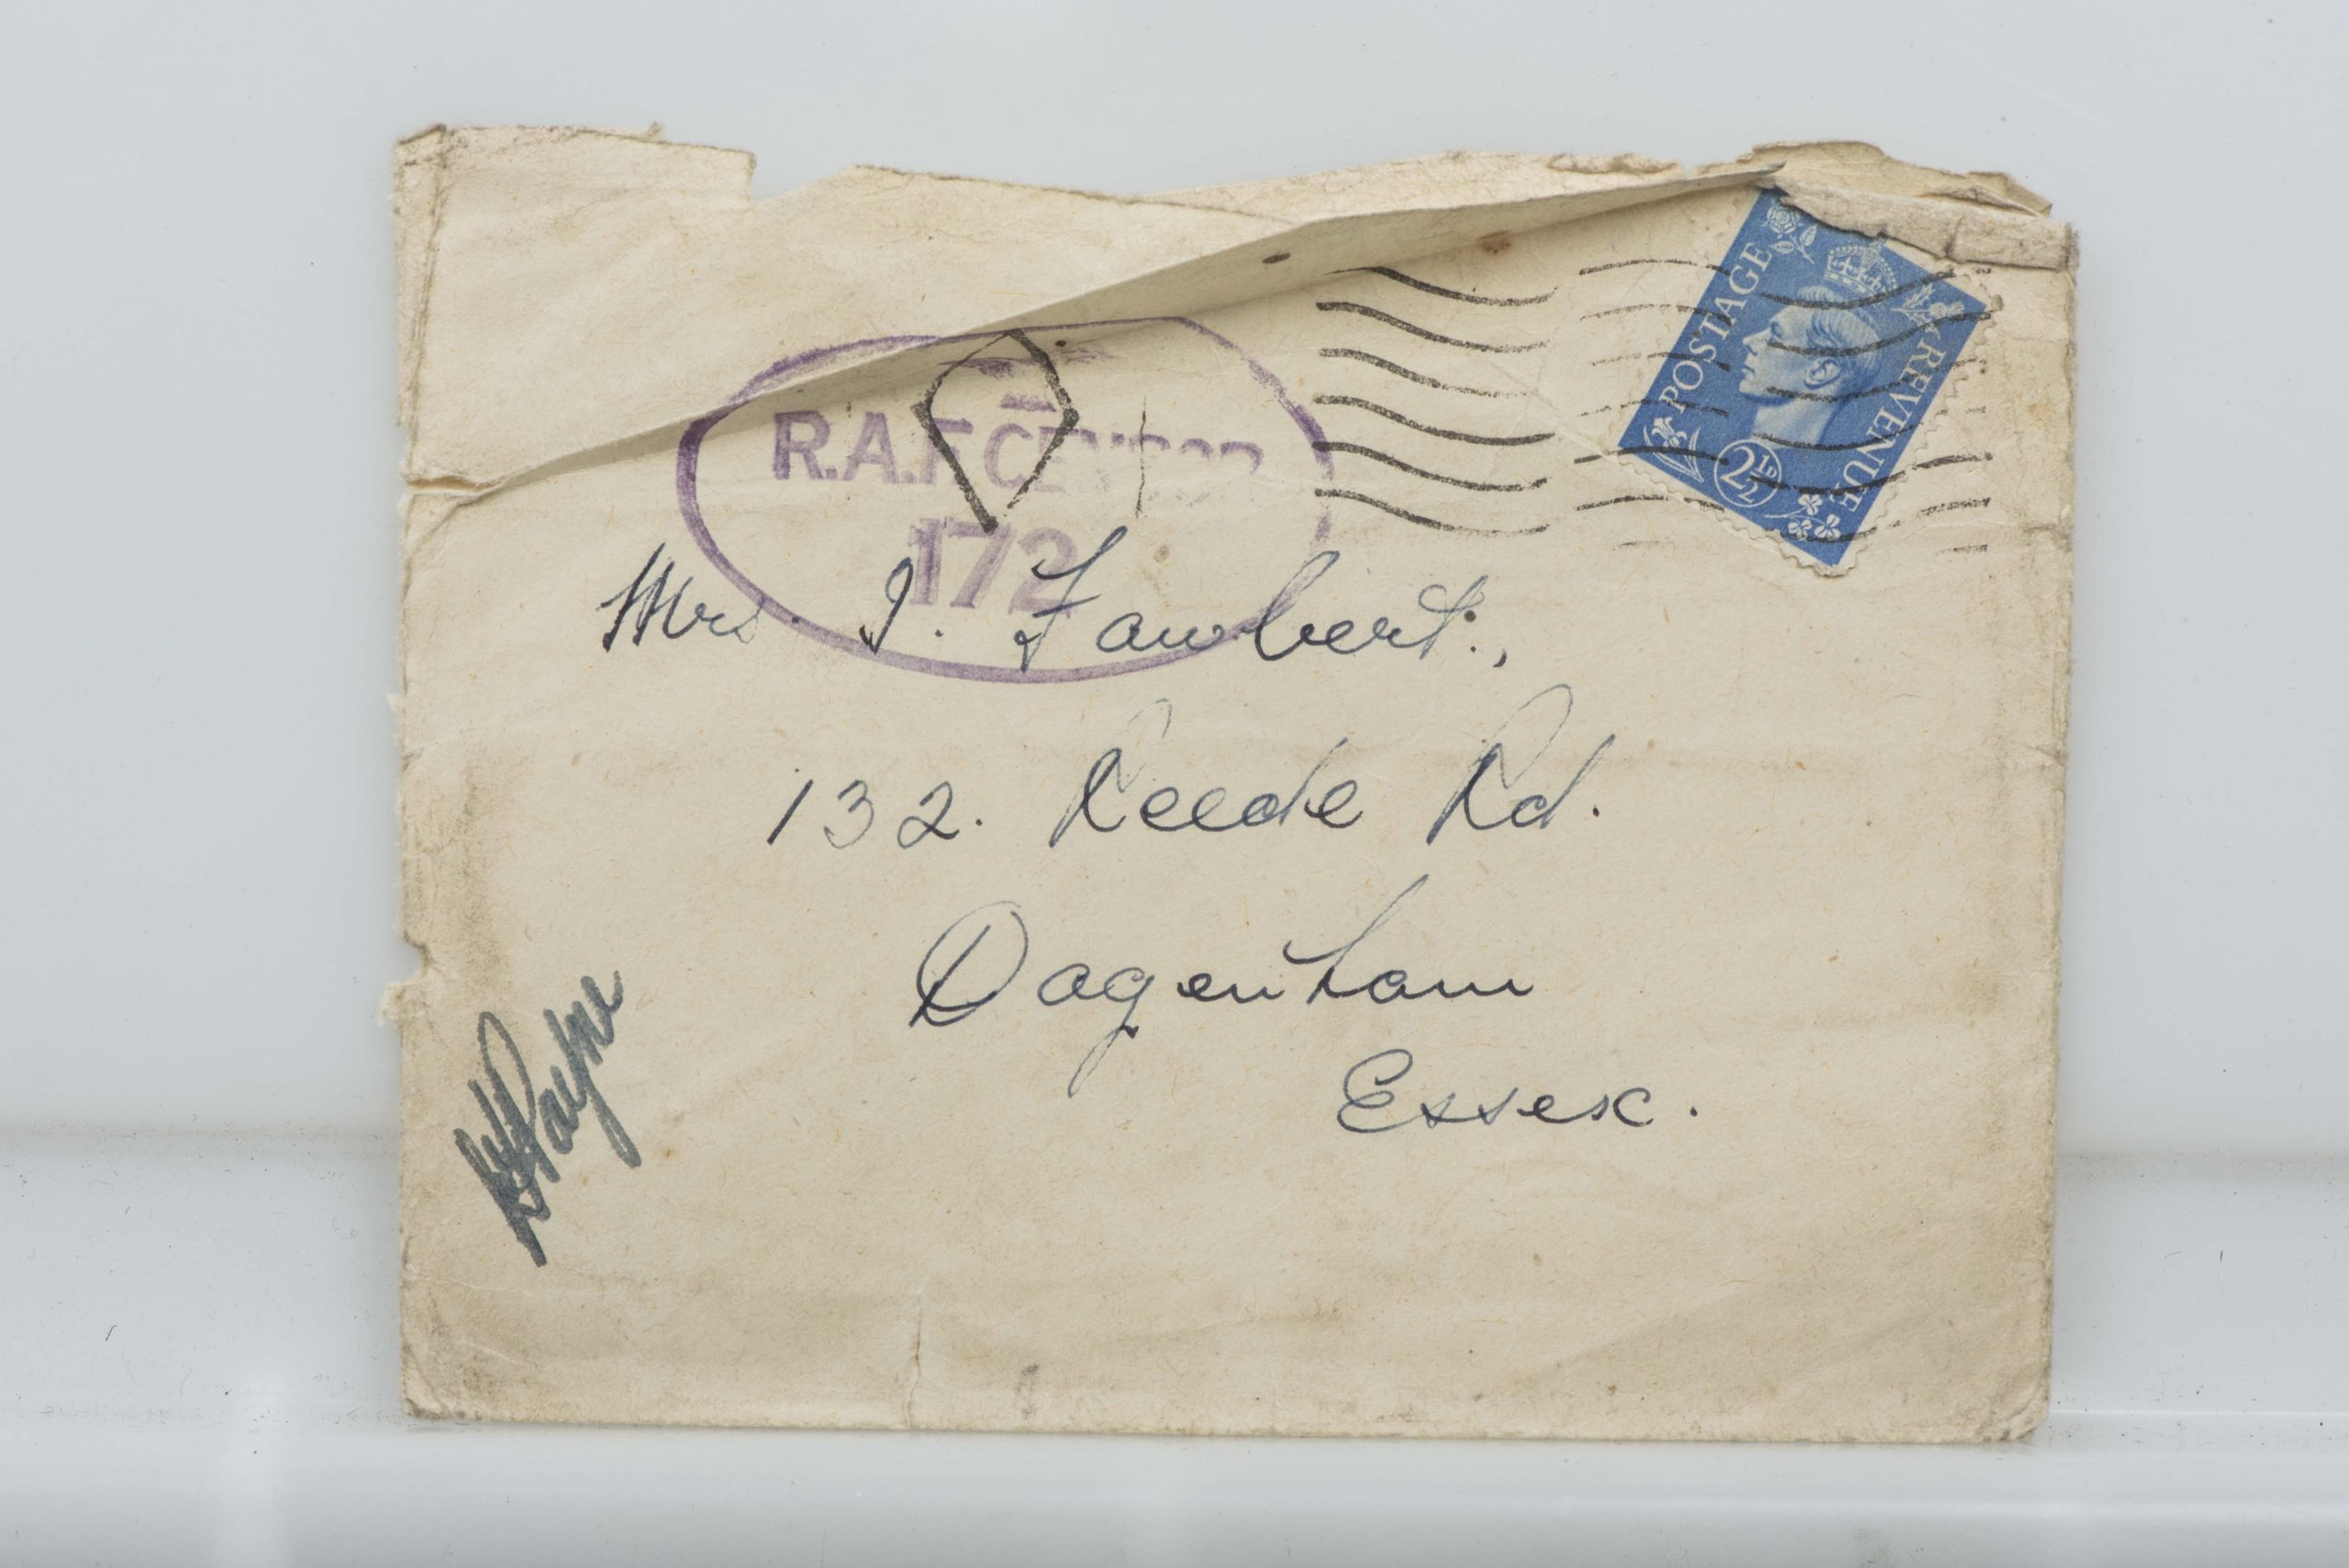 POSTAGE
REVENUE
2½D
R.A.F. CENSOR
172
Mrs. I. Fawbert.,
132. Reede Rd.
Dagenham
Essex.
Payne